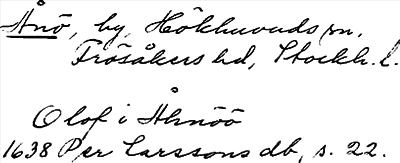 Ånö, by, Hökhuvuds sn,
Frösåkers hd, Stockh. l.
Olof i Åhnöö
1638 Per Larssons db, s. 22.